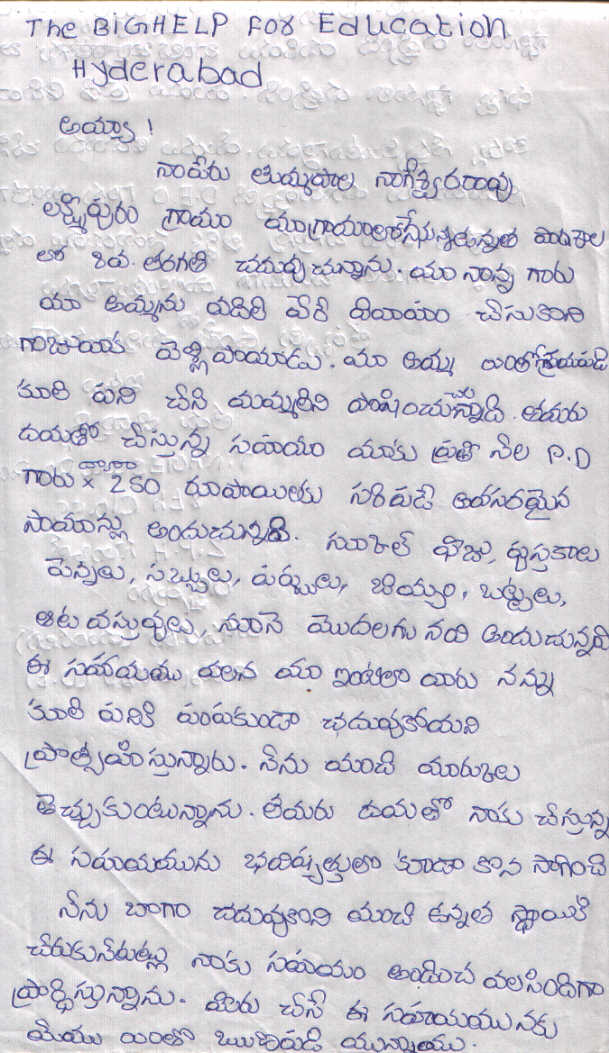 The BIGHELP FOR Education
Hyderabad
అయ్యా !
నాపేరు తుమ్మపాల నాగేశ్వరరావు
లక్ష్మీపురం గ్రామం మాగ్రామంలోని ఉన్నత పాఠశాల
లో 8వ. తరగతి చదువు చున్నాను. మా నాన్న గారు
మా అమ్మను వదిలి వేరే వివాహం చేసుకొని
గాజువాక వెళ్ళి పోయాడు. మా అమ్మ ఎంతో శ్రమపడి
కూలి పని చేసి మమ్మల్ని పోషించుచున్నాది. తమరు
దయతో చేస్తున్న సహాయం మాకు ప్రతి నెల P.D
గారు ద్వారా 250 రూపాయిలకు సరిపడే అవసరమైన
సామాన్లు అందుచున్నవి. స్కూల్ ఫీజు, పుస్తకాలు
పెన్నులు, సబ్బులు, పప్పులు, బియ్యం, బట్టలు,
ఆట వస్తువులు, నూనె మొదలగు నవి అందుచున్నవి
ఈ సహాయము వలన మా ఇంటిలో వారు నన్ను
కూలి పనికి పంపకుండా చదువుకోమని
ప్రోత్సహిస్తున్నారు. నేను మంచి మార్కులు
తెచ్చుకుంటున్నాను. తమరు దయతో నాకు చేస్తున్న
ఈ సహాయమును భవిష్యత్తులో కూడా కొన సాగించి
నేను బాగా చదువుకొని మంచి ఉన్నత స్థాయికి
చేరుకునేటట్లు నాకు సహాయం అందించ వలసిందిగా
ప్రార్థిస్తున్నాను. మీరు చేసే ఈ సహాయము నకు
మేము ఎంతో ఋణపడి యున్నాము.